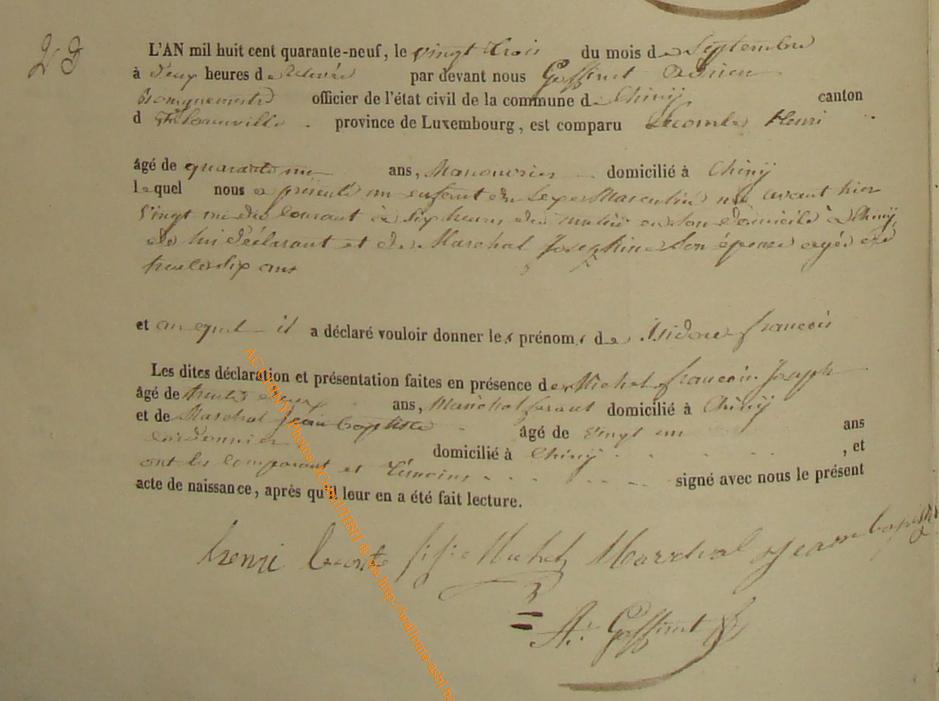 23
L'AN mil huit cent quarante-neuf, le vingt trois du mois de Septembre
à deux heures de relevée par devant nous Goffinet Adrien
Bourguemestre officier de l'état civil de la commune de Chiny canton
d province de Luxembourg, est comparu Lecomte Henri
âgé de quarante un ans, Manouvrier domicilié à Chiny
lequel nous a présenté un enfant du sexe Masculin né avant hier
vingt un du courant à six heures du matin en son domicile à Chiny
de lui déclarant et de Marechal Josephine son épouse agée de
trente six ans
et auquel il a déclaré vouloir donner les prénoms de Isidore françois
Les dites déclaration et présentation faites en présence de Michel françois Joseph
âgé de trente deux ans, Marechal ferant domicilié à Chiny
et de Marechal Jean baptiste âgé de vingt un ans
Cordonnier domicilié à Chiny , et
ont les comparant et témoins signé avec nous le présent
acte de naissance, après qu'il leur en a été fait lecture.
henri lecomte f j Michel Marechal jean baptiste
A. Goffinet